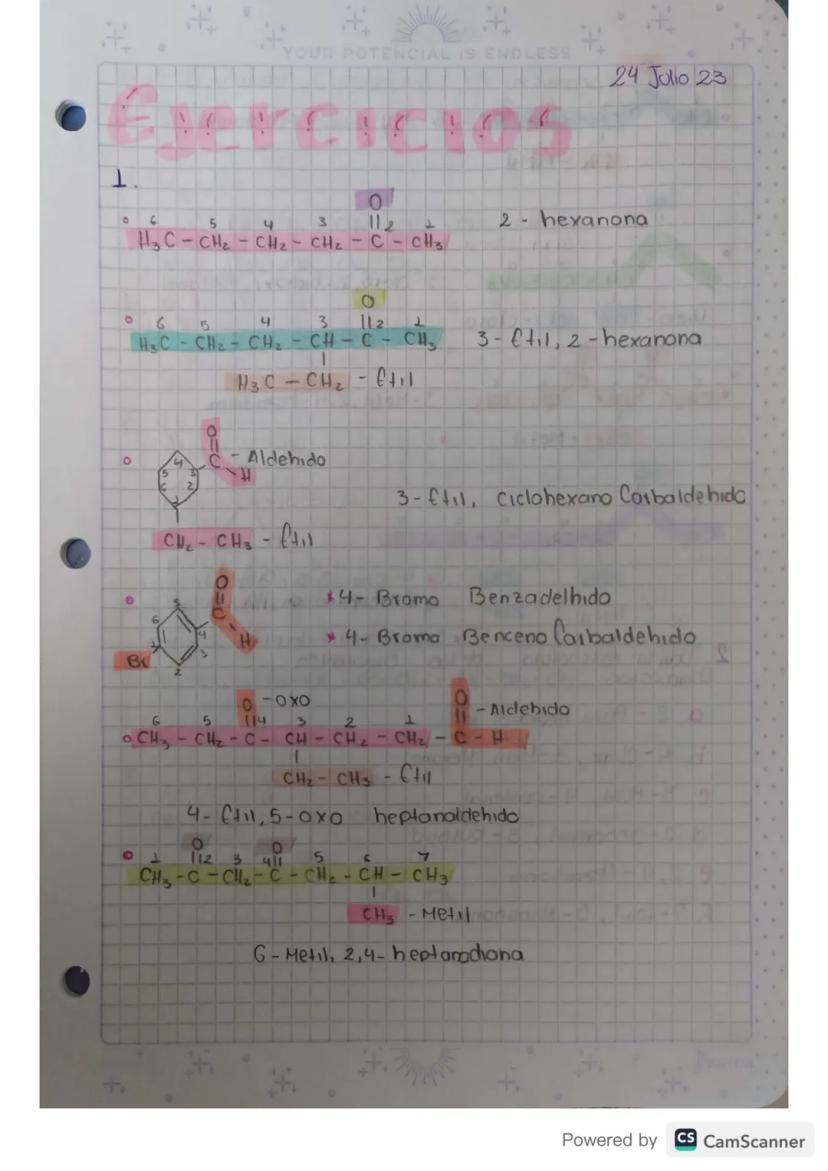 YOUR POTENCIAL IS ENDLESS
24 Julio 23
Ejercicios
1.
O
6 5 4 3 ||2 1
H₃C - CH₂ - CH₂ - CH₂ - C - CH₃ 2 - hexanona
O
6 5 4 3 ||2 1
H₃C - CH₂ - CH₂ - CH - C - CH₃ 3 - Etil, 2 - hexanona
|
H₃C - CH₂ - Etil
O
||
C - Aldehido
4 5 3 H
6 2
1
3 - Etil, Ciclohexano Carbaldehido
CH₂ - CH₃ - Etil
O
||
C
H
* 4 - Bromo Benzadelhido
* 4 - Bromo Benceno Carbaldehido
5
6
4
1
3
Br
2
O - oxo O
6 5 ||4 3 2 1 || - Aldehido
CH₃ - CH₂ - C - CH - CH₂ - CH₂ - C - H
|
CH₂ - CH₃ - Etil
4 - Etil, 5 - oxo heptanaldehido
O O
1 ||2 3 4|| 5 6 7
CH₃ - C - CH₂ - C - CH₂ - CH - CH₃
|
CH₃ - Metil
6 - Metil, 2,4 - heptanodiona
Powered by CS CamScanner